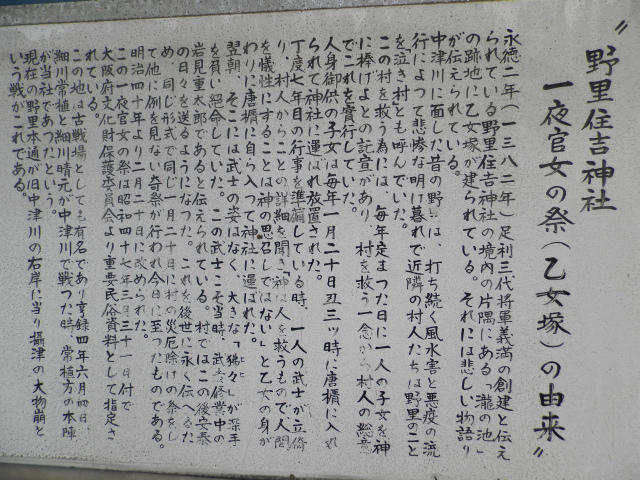 〝野里住吉神社
一夜官女の祭(乙女塚)の由来〟
永徳二年(一三八二年)足利三代将軍義満の創建と伝え
られている野里住吉神社の境内の片隅にある「瀧の池」
の跡地に乙女塚が建られている。それには悲しい物語り
が伝えられている。
中津川に面した昔の野里は、打ち続く風水害と悪疫の流
行によつて悲惨な明け暮れで近隣の村人たちは野里のこと
を泣き村とも呼んでいた。
この村を救う為には、毎年定まつた日に一人の子女を神
に捧げよとの託宣があり、村を救う一念から村人の総意
でこれを実行していた。
人身御供の子女は毎年一月二十日丑三ッ時に唐櫃に入れ
られて神社に運ばれ放置された。
丁度七年目の行事を準備している時、一人の武士が立
り、村人からことの詳細を聞き「神は人を救うもので人間
を犠牲にすることは神の思召しではない」と乙女の身が
わりに唐櫃に自ら入つて神社に運ばれた。
翌朝、そこには武士の姿はなく、大きな「狒々」が深手
を負い絶命していた。この武士こそ当時、武者修業中の
岩見重太郎であると伝えられている。村ではこの後安泰
の日々を送るようになつた。これを後世に永く伝へるた
め、同じ形式で同じ一月二十日に村の災厄除けの祭をし
て他に例を見ない奇祭が行われ今日に至つたものである。
明治四十年より二月二十日に改められた。
この一夜官女の祭は昭和四十七年三月三十一日付で
大阪府文化財保護委員会より重要民俗資料として指定さ
れている。
この地は古戦場としても有名であり享録四年六月四日、
細川常植と細川晴元が中津川で戦つた時、常植方の本陣
が当社であつたという。
現在の野里本通が旧中津川の右岸に当り摂津の大物崩と
いう戦がこれである。